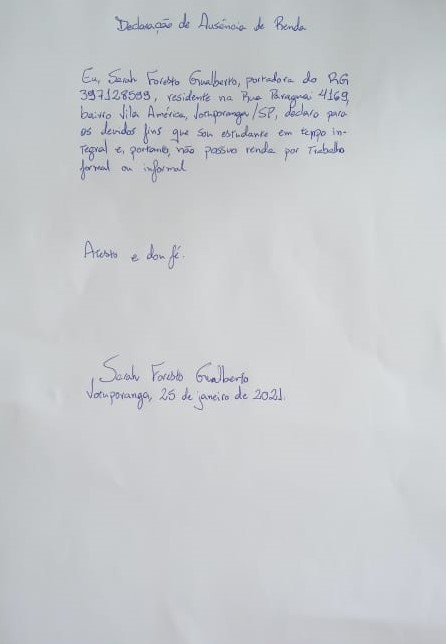 Declaração de Ausência de Renda
Eu, Sarah Foresto Gualberto, portadora do RG
397128599, residente na Rua Paraguai 4169,
bairro Vila América, Votuporanga/SP, declaro para
os devidos fins que sou estudante em tempo in-
tegral e, portanto, não possuo renda por Trabalho
formal ou informal
Atesto e dou fé.
Sarah Foresto Gualberto
Votuporanga, 25 de janeiro de 2021.